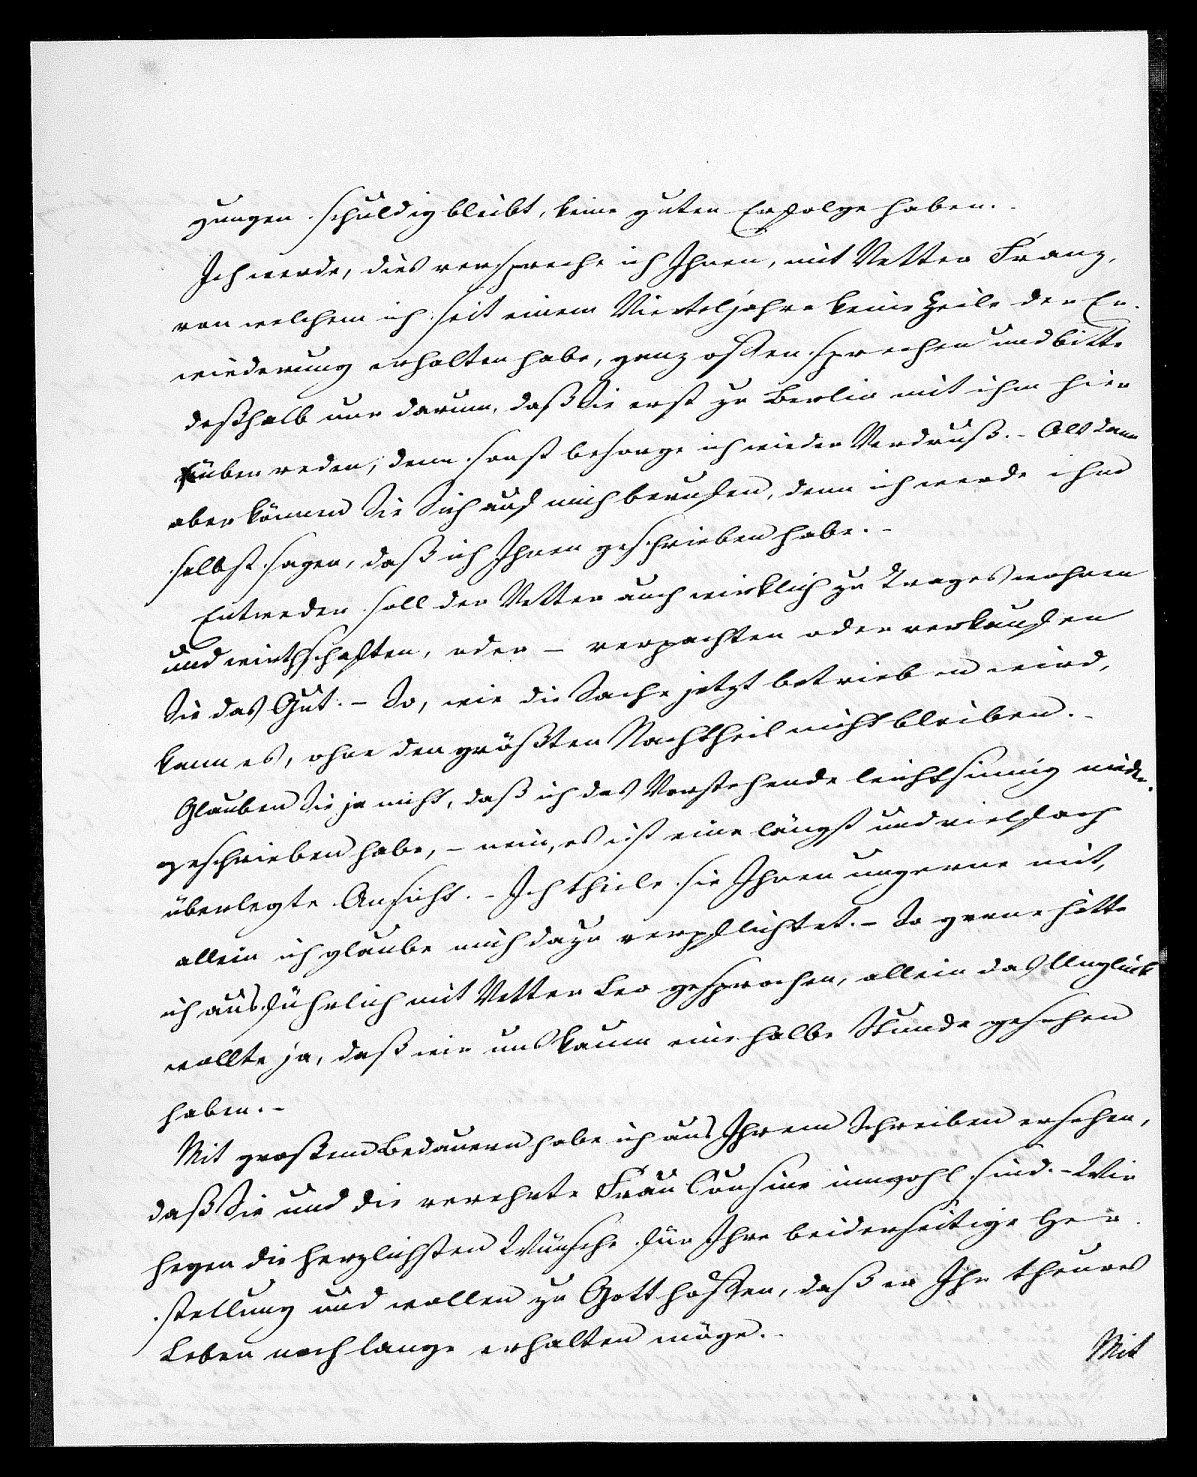 gungen schuldig bleibt, keine guten Erfolge haben. -
Ich werde, dies verspreche ich Ihnen, mit Vetter Franz,
von welchem ich seit einem Vierteljahre keine Zeile der Er-
wiederung erhalten habe, ganz offen sprechen und bitte
deßhalb nur darum, daß Sie erst zu Berlin mit ihm hier
rüber reden, denn sonst besorge ich wieder Verdruß. - Alsdann
aber können Sie Sich auf mich berufen, denn ich werde ihm
selbst sagen, daß ich Ihnen geschrieben habe. -
Entweder soll der Vetter auch wirklich zu Trages wohnen
und wirthschaften, oder - verpachten oder verkaufen
Sie das Gut. - So, wie die Sache jetzt betrieben wird,
kann es, ohne den größten Nachtheil nicht bleiben. -
Glauben Sie ja nicht, daß ich das Vorstehende leichtsinnig nieder-
geschrieben habe, - nein, es ist eine längst und vielfach
überlegte Ansicht. - Ich theile sie Ihnen ungerne mit,
allein ich glaube mich dazu verpflichtet. - So gerne hätte
ich ausführlich mit Vetter Leo gesprochen, allein das Unglück
wollte ja, daß wir uns kaum eine halbe Stunde gesehen
haben. -
Mit großem Bedauern habe ich aus Ihrem Schreiben ersehen,
daß Sie und die verehrte Frau Cousine unwohl sind. - Wir
hegen die herzlichsten Wünsche für Ihre beiderseitige Her-
stellung und wollen zu Gott hoffen, daß er Ihr theures
Leben noch lange erhalten möge. -
Mit